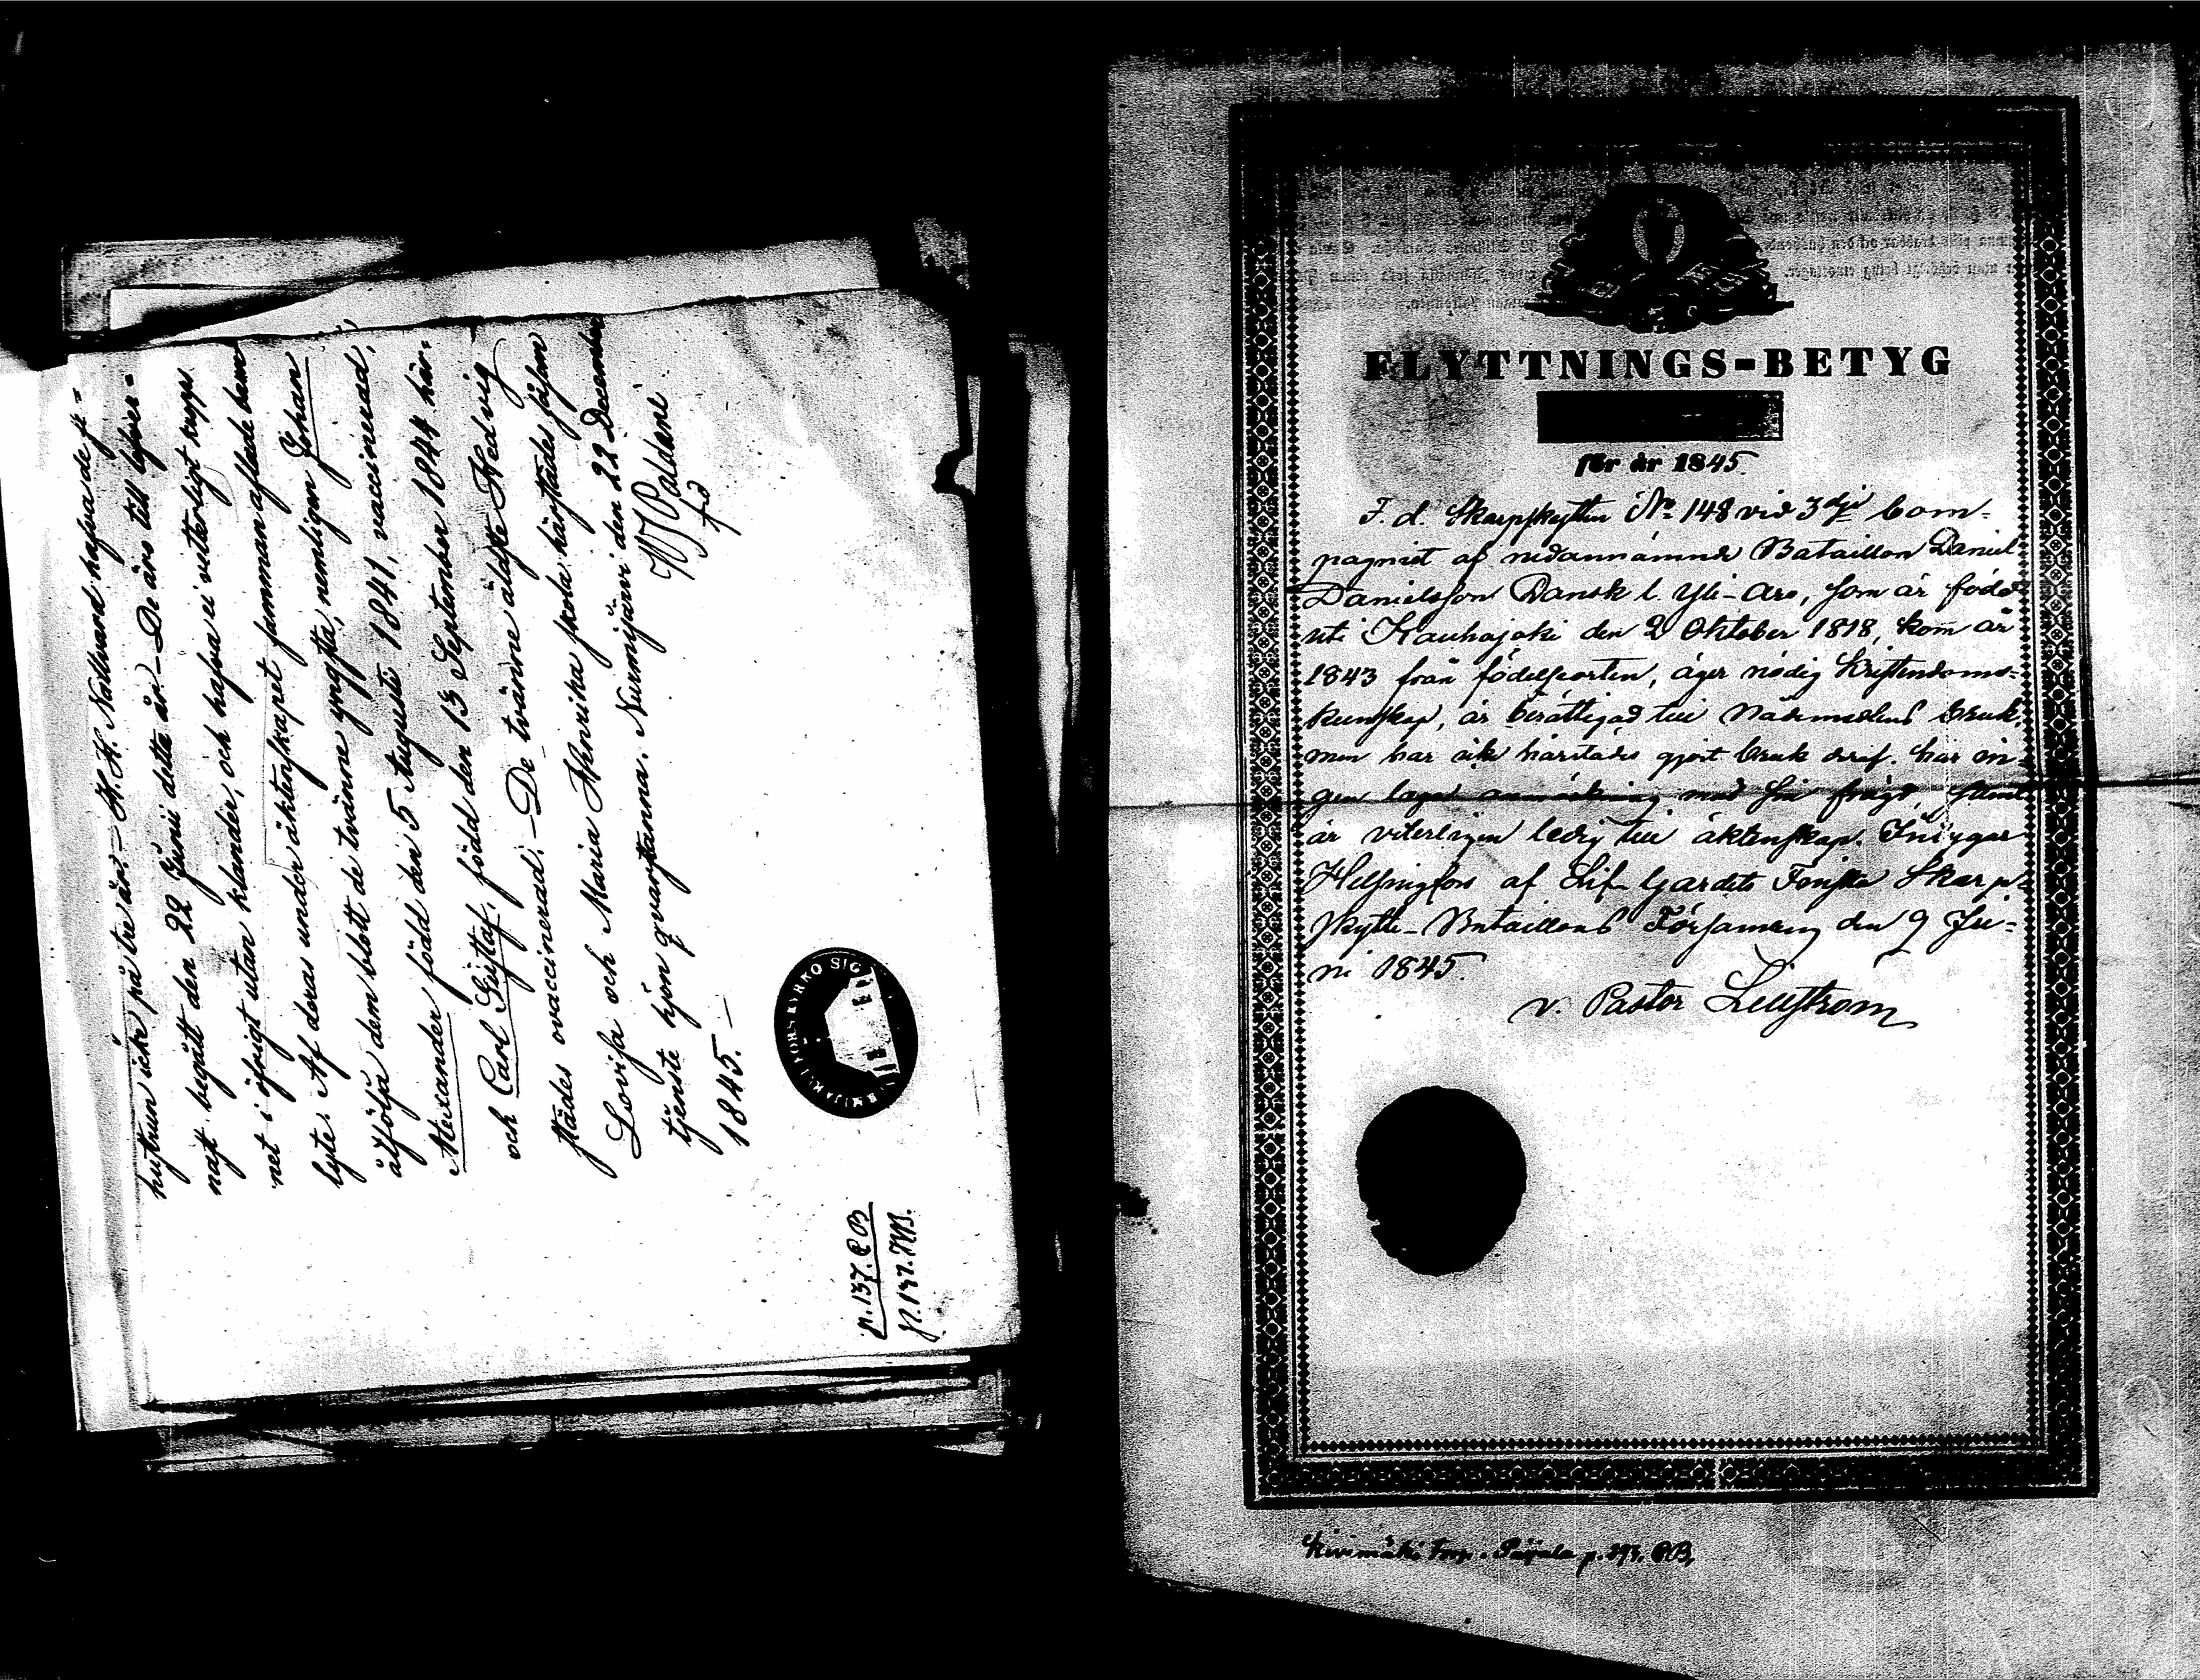 hustrun icke på tre år. – H. H. Nattvard hafva de se-
nast begått den 22 Junii detta år. – De äro till lefver-
net i öfrigt utan klander, och hafva ei veterligt kropps
lyte. Af deras under äktenskapet sammanaflade barn
åtfölja dem blott de tvänne yngsta, nemligen Johan
Alexander född den 5 Augusti 1841, vaccinerad,
och Carl Gustaf, född den 13 September 1844 här-
städes ovaccinerad. – De tvänne äldste Hedvig
Lovisa och Maria Henrika skola härstädes såsom
tjenste hjon qvarstanna. Nurmijärvi den 22 December
1845. –
W Paldani
p. 137. CB
p. 137. KB.
FLYTTNINGS-BETYG
för år 1845.
F. d. Skarpskytten No 148 vid 3dje Com-
pagniet af nedannämnde Bataillon Daniel
Danielsson Dansk l. Yli-Aro, som är född
uti Kauhajoki den 2 Oktober 1818, kom år
1843 från födelseorten, äger nödig Kristendoms-
kunskap, är berättigad till Nådemedlens bruk,
men har icke härstädes gjort bruk deraf. har in-
gen laga anmärkning med sin frägd, samt
är veterligen ledig till äktenskap. Intygar
Helsingfors af Lif-Gardets Finska Skarp-
skytte-Bataillons Församling den 9 Ju-
ni 1845.
v. Pastor Liljström
Kivimäki torp. p. CB,